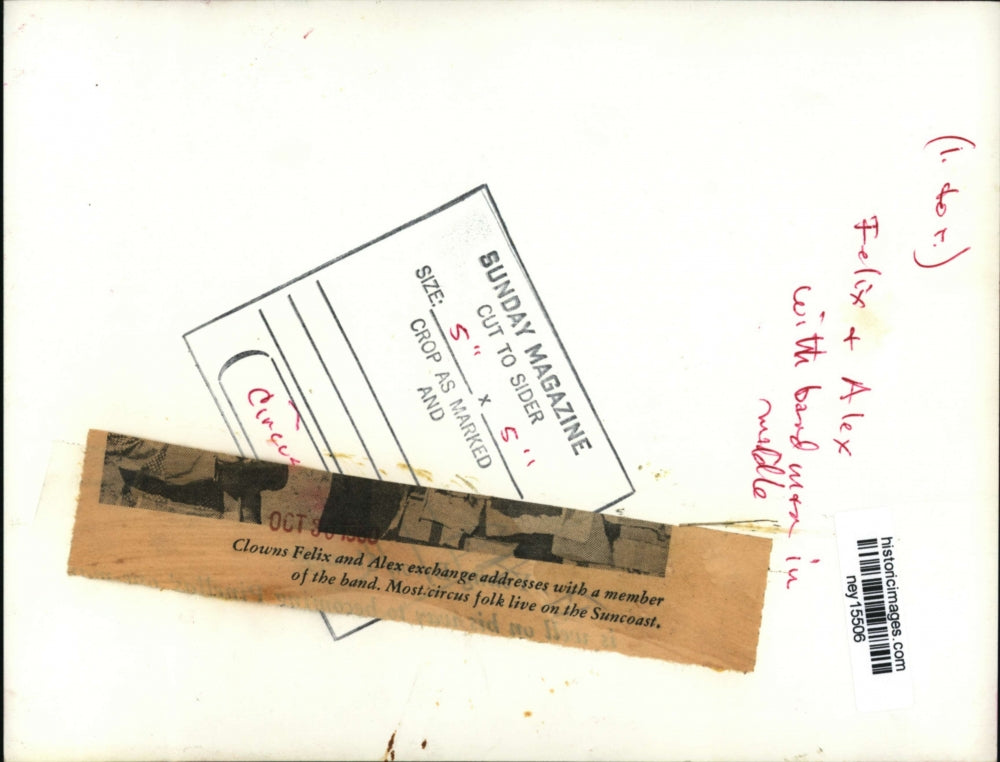 (l. to r.)
Felix + Alex
with band man in
middle
SUNDAY MAGAZINE
CUT TO SIDER
SIZE: 5" x 5"
CROP AS MARKED
AND
Circus
OCT 30
Clowns Felix and Alex exchange addresses with a member
of the band. Most circus folk live on the Suncoast.
historicimages.com
ney15506